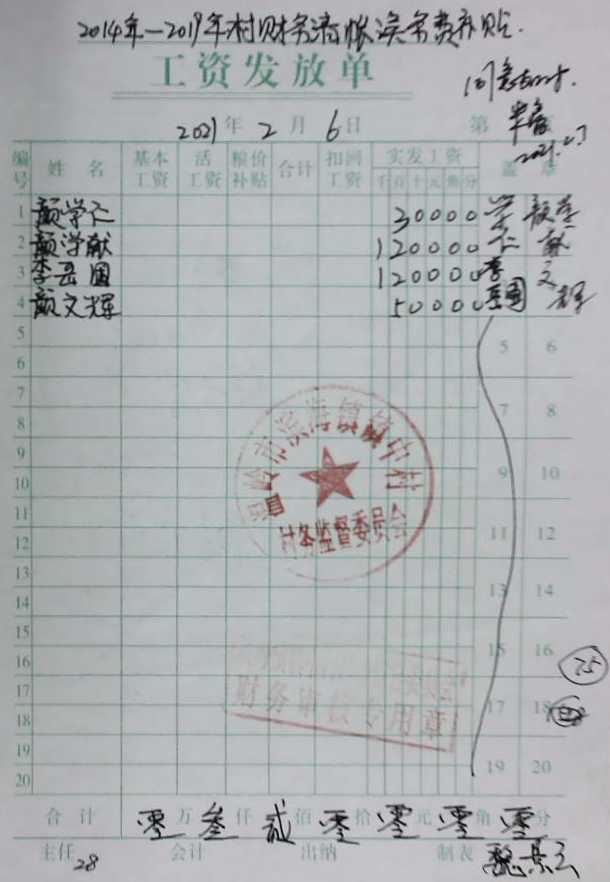 2014年—2019年村财务清帐误务费补贴.
工资发放单
同意
2021年2月6日 第
2021.2.7
编号 姓名 基本工资 活工资 粮价补贴 合计 扣回工资 实发工资 千百十元角分 盖章
1 颜学仁 30000 学仁
2 颜学献 120000 颜学献
3 李岳国 120000 李岳国
4 颜文辉 50000 文辉
5 5 6
6
7 7 8
8
9 9 10
10
11 11 12
12
13 13 14
14
15 15 16
16 75
17 17 18
18
19 19 20
20
温岭市滨海镇镇中村
村务监督委员会
财务审核专用章
合计 零万叁仟贰佰零拾零元零角零分
主任 28 会计 出纳 制表